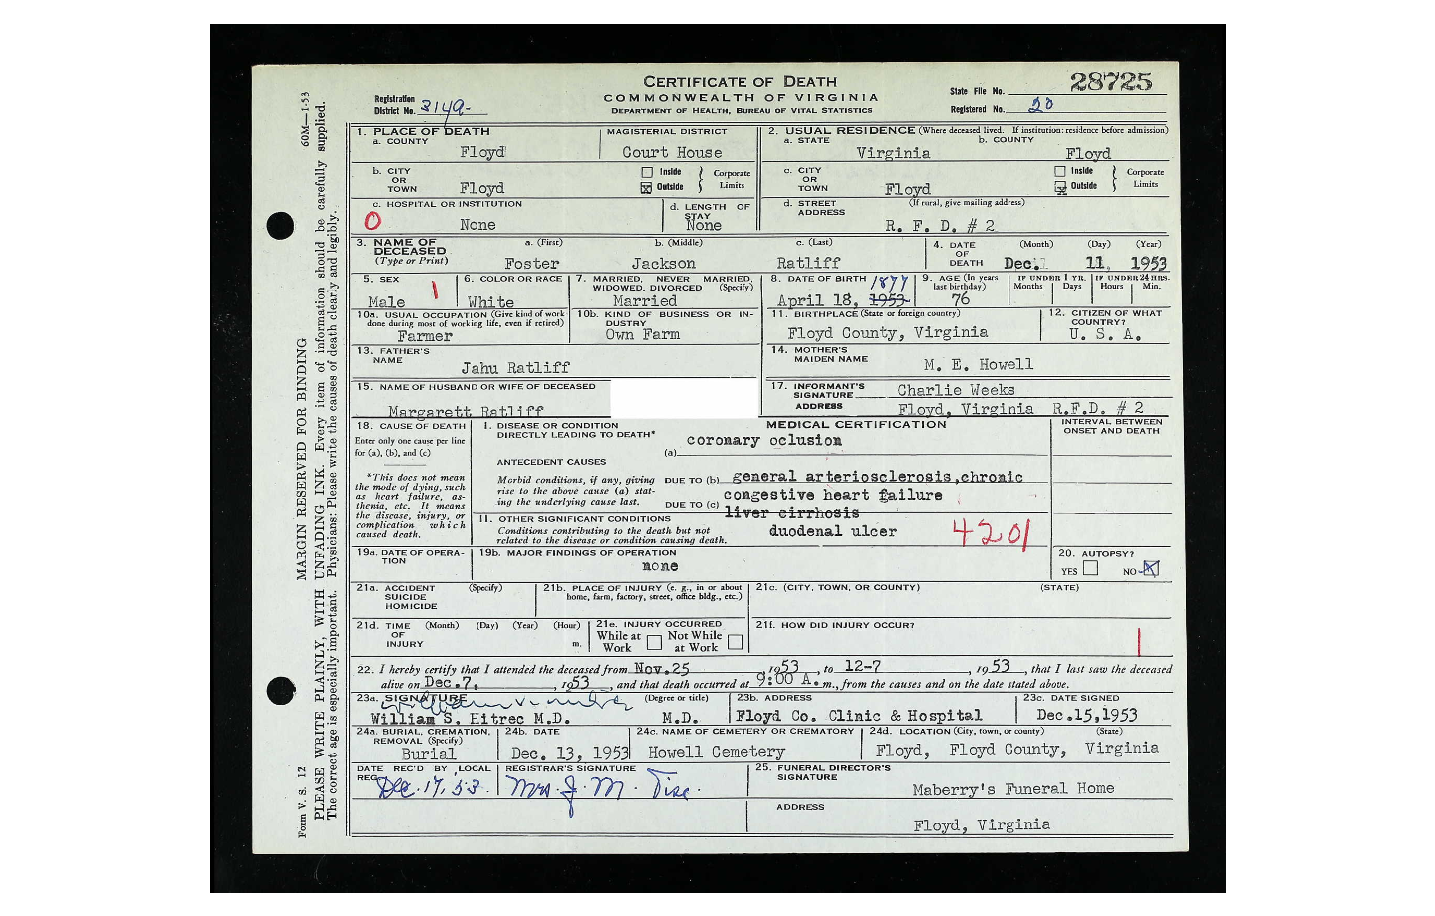 CERTIFICATE OF DEATH
COMMONWEALTH OF VIRGINIA
DEPARTMENT OF HEALTH, BUREAU OF VITAL STATISTICS
Registration District No. 3149-
State File No. 28725
Registered No. 20
1. PLACE OF DEATH
a. COUNTY Floyd
MAGISTERIAL DISTRICT Court House
2. USUAL RESIDENCE (Where deceased lived. If institution: residence before admission)
a. STATE Virginia b. COUNTY Floyd
b. CITY OR TOWN Floyd
Inside Outside Corporate Limits
c. CITY OR TOWN Floyd
Inside Outside Corporate Limits
c. HOSPITAL OR INSTITUTION None
0
d. LENGTH OF STAY None
d. STREET ADDRESS (If rural, give mailing address)
R. F. D. # 2
3. NAME OF DECEASED (Type or Print)
a. (First) Foster b. (Middle) Jackson c. (Last) Ratliff
4. DATE OF DEATH (Month) (Day) (Year) Dec. 11, 1953
5. SEX Male 1
6. COLOR OR RACE White
7. MARRIED, NEVER MARRIED, WIDOWED, DIVORCED (Specify) Married
8. DATE OF BIRTH 1877 April 18, 1953
9. AGE (In years last birthday) 76
IF UNDER 1 YR. Months Days
IF UNDER 24 HRS. Hours Min.
10a. USUAL OCCUPATION (Give kind of work done during most of working life, even if retired) Farmer
10b. KIND OF BUSINESS OR INDUSTRY Own Farm
11. BIRTHPLACE (State or foreign country) Floyd County, Virginia
12. CITIZEN OF WHAT COUNTRY? U. S. A.
13. FATHER'S NAME Jahu Ratliff
14. MOTHER'S MAIDEN NAME M. E. Howell
15. NAME OF HUSBAND OR WIFE OF DECEASED Margarett Ratliff
17. INFORMANT'S SIGNATURE Charlie Weeks
ADDRESS Floyd, Virginia R.F.D. # 2
18. CAUSE OF DEATH
Enter only one cause per line for (a), (b), and (c)
*This does not mean the mode of dying, such as heart failure, asthenia, etc. It means the disease, injury, or complication which caused death.
MEDICAL CERTIFICATION
INTERVAL BETWEEN ONSET AND DEATH
I. DISEASE OR CONDITION DIRECTLY LEADING TO DEATH*
(a) coronary oclusion
ANTECEDENT CAUSES
Morbid conditions, if any, giving rise to the above cause (a) stating the underlying cause last.
DUE TO (b) general arteriosclerosis,chronic
congestive heart failure
DUE TO (c) liver cirrhosis
II. OTHER SIGNIFICANT CONDITIONS
Conditions contributing to the death but not related to the disease or condition causing death.
duodenal ulcer
4201
19a. DATE OF OPERATION
19b. MAJOR FINDINGS OF OPERATION
none
20. AUTOPSY?
YES NO
21a. ACCIDENT SUICIDE HOMICIDE (Specify)
21b. PLACE OF INJURY (e. g., in or about home, farm, factory, street, office bldg., etc.)
21c. (CITY, TOWN, OR COUNTY) (STATE)
21d. TIME OF INJURY (Month) (Day) (Year) (Hour) m.
21e. INJURY OCCURRED While at Work Not While at Work
21f. HOW DID INJURY OCCUR?
22. I hereby certify that I attended the deceased from Nov.25, 1953, to 12-7, 1953, that I last saw the deceased
alive on Dec.7, 1953, and that death occurred at 9:00 A.m., from the causes and on the date stated above.
23a. SIGNATURE (Degree or title)
William S. Eitrec M.D. M.D.
23b. ADDRESS Floyd Co. Clinic & Hospital
23c. DATE SIGNED Dec.15,1953
24a. BURIAL, CREMATION, REMOVAL (Specify) Burial
24b. DATE Dec. 13, 1953
24c. NAME OF CEMETERY OR CREMATORY Howell Cemetery
24d. LOCATION (City, town, or county) (State) Floyd, Floyd County, Virginia
DATE REC'D BY LOCAL REG. Dec. 17, 53
REGISTRAR'S SIGNATURE Mrs. J. M.
25. FUNERAL DIRECTOR'S SIGNATURE Maberry's Funeral Home
ADDRESS
Floyd, Virginia
60M—1-53
MARGIN RESERVED FOR BINDING
PLEASE WRITE PLAINLY, WITH UNFADING INK. Every item of information should be carefully supplied.
The correct age is especially important. Physicians: Please write the causes of death clearly and legibly.
Form V. S. 12